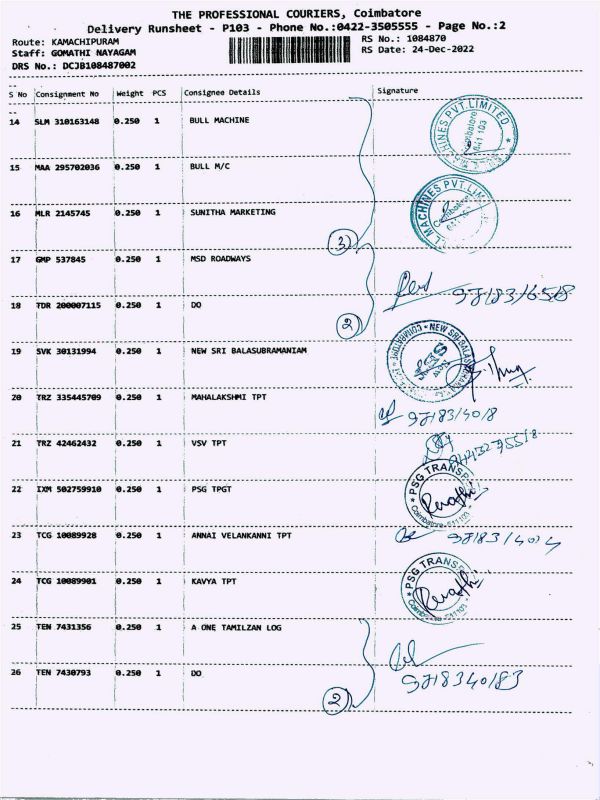 THE PROFESSIONAL COURIERS, Coimbatore
Delivery Runsheet - P103 - Phone No.:0422-3505555 - Page No.:2
Route: KAMACHIPURAM RS No.: 1084870
Staff: GOMATHI NAYAGAM RS Date: 24-Dec-2022
DRS No.: DCJB108487002
S No Consignment No Weight PCS Consignee Details Signature
14 SLM 310163148 0.250 1 BULL MACHINE
MACHINES PVT.LIMITED
15 MAA 295702036 0.250 1 BULL M/C
16 MLR 2145745 0.250 1 SUNITHA MARKETING
MACHINES PVT.
3
17 GMP 537845 0.250 1 MSD ROADWAYS
18 TDR 200007115 0.250 1 DO
2
19 SVK 30131994 0.250 1 NEW SRI BALASUBRAMANIAM
NEW SRI COIMBATORE
20 TRZ 335445709 0.250 1 MAHALAKSHMI TPT
21 TRZ 42462432 0.250 1 VSV TPT
22 IXM 502759910 0.250 1 PSG TPGT
PSG Coimbatore
23 TCG 10089928 0.250 1 ANNAI VELANKANNI TPT
24 TCG 10089901 0.250 1 KAVYA TPT
PSG Coimbatore
25 TEN 7431356 0.250 1 A ONE TAMILZAN LOG
26 TEN 7430793 0.250 1 DO
9718340183
2